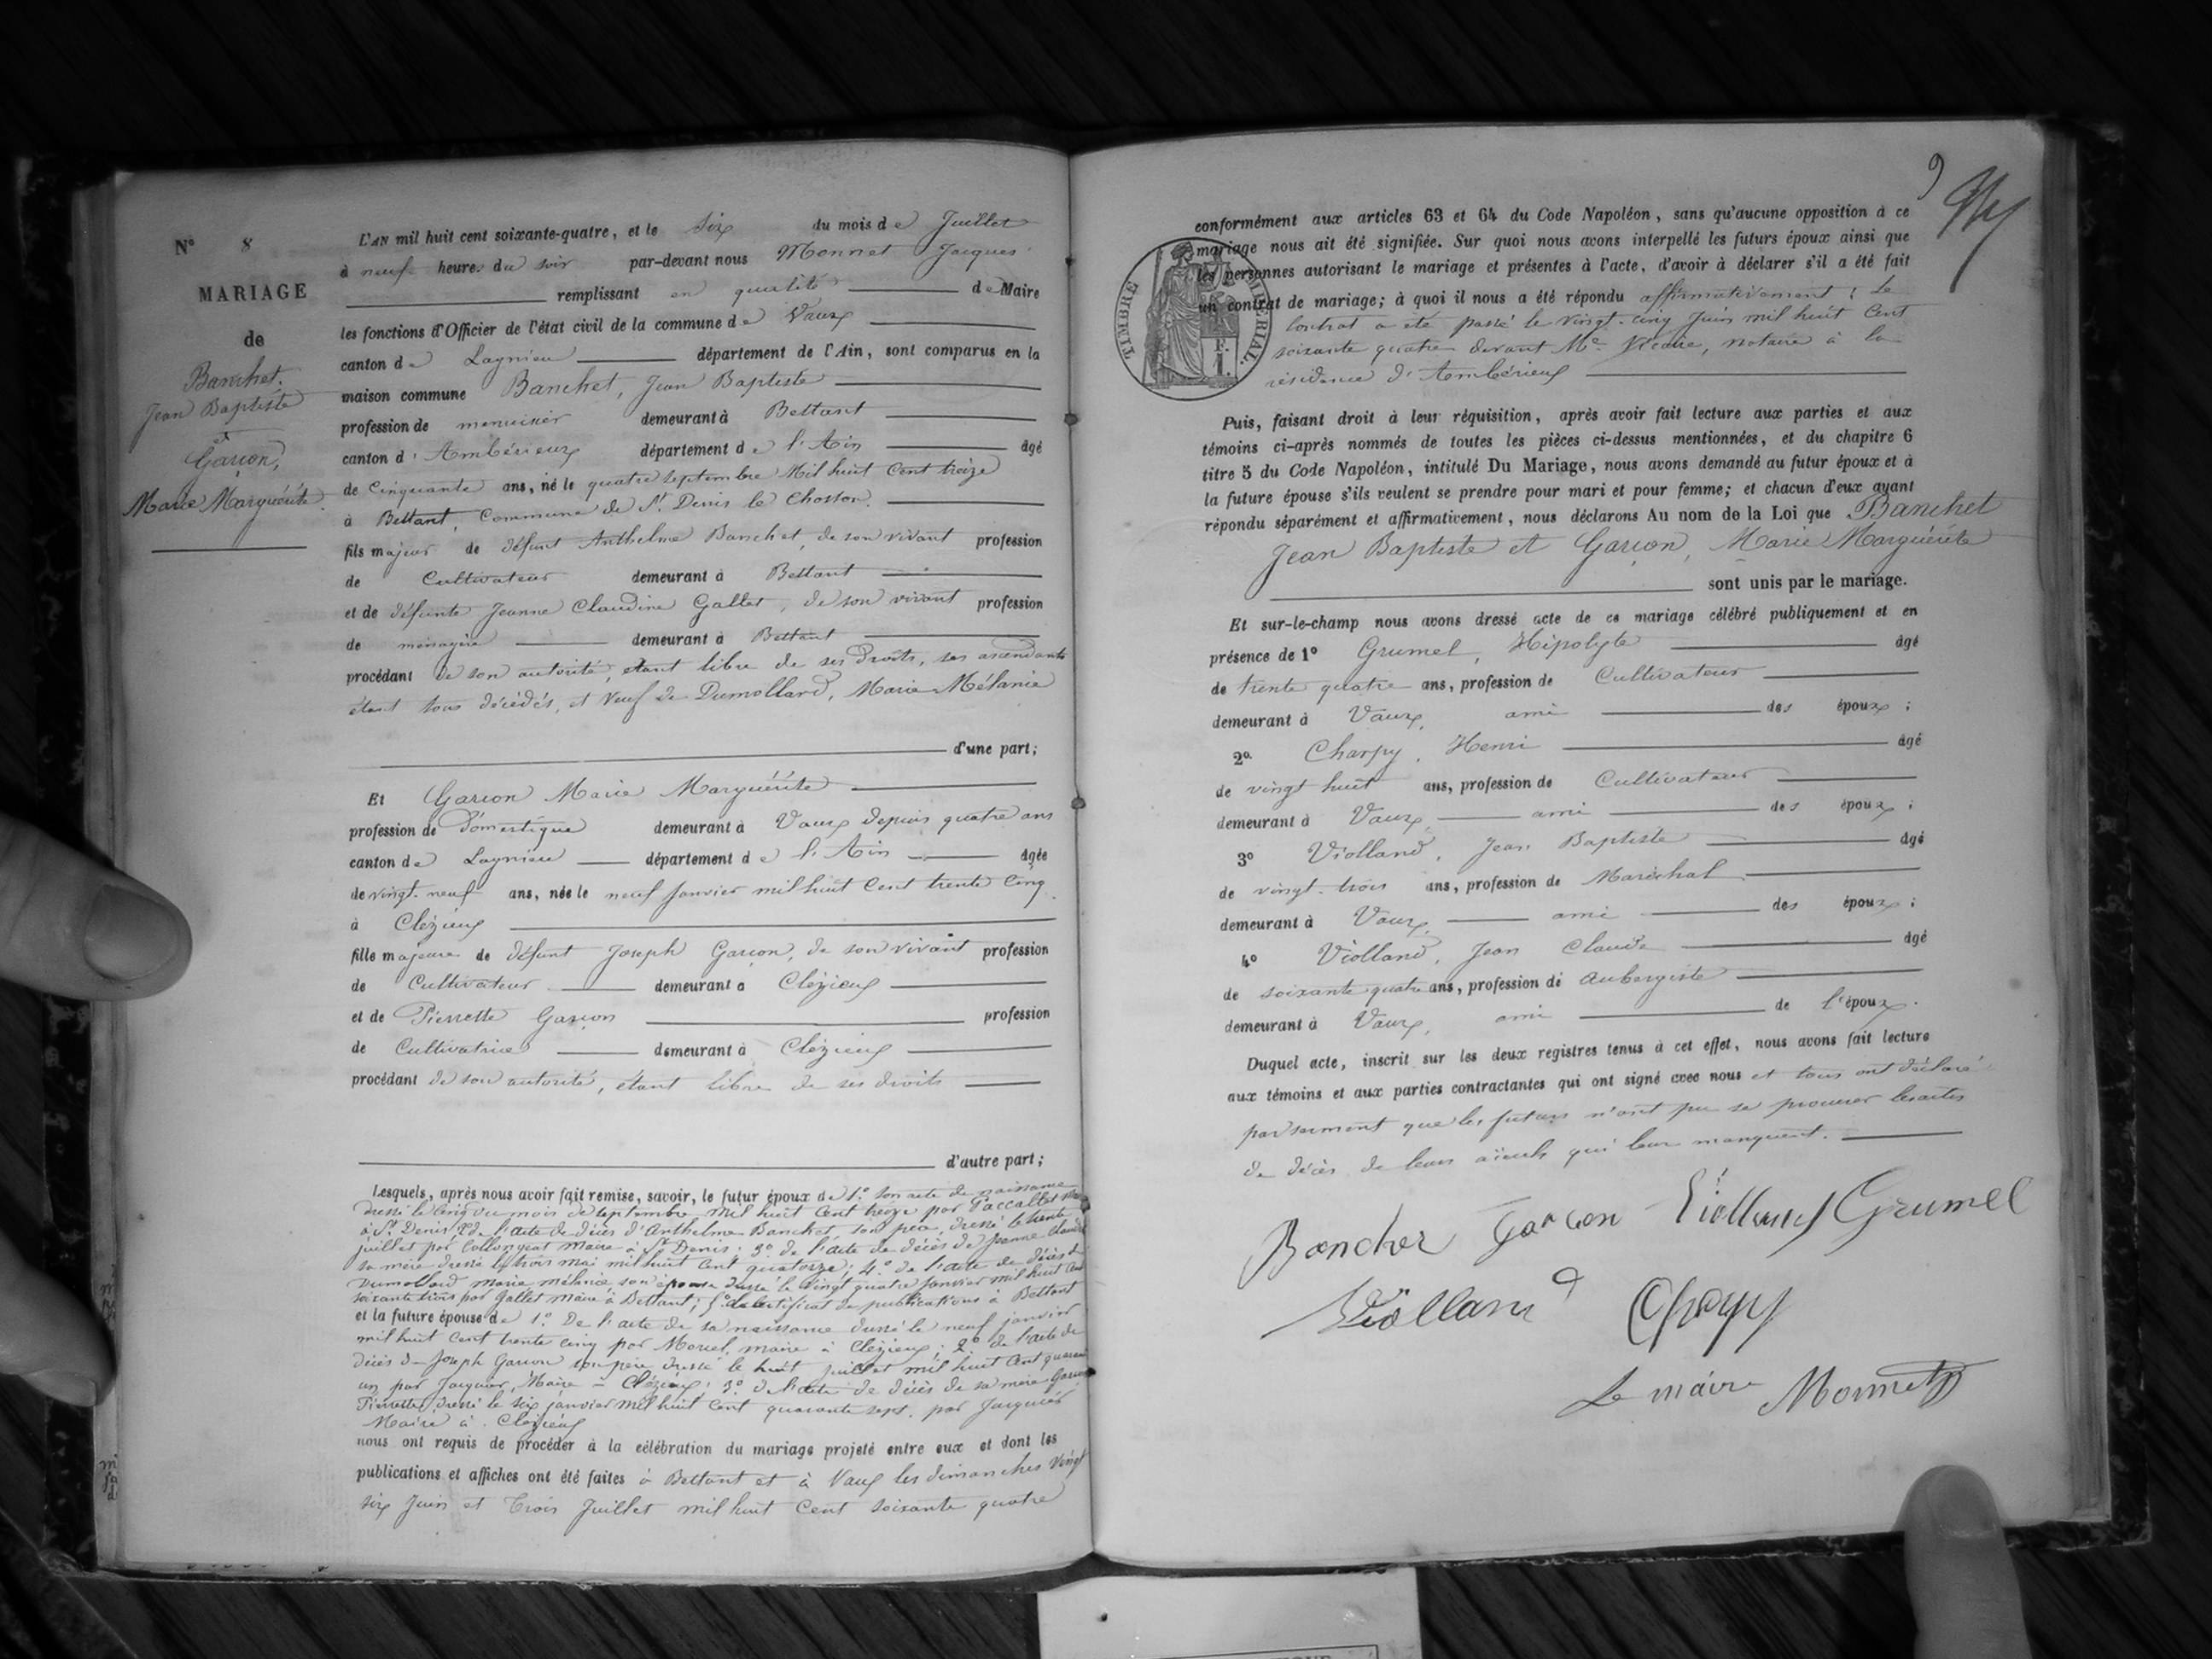 N° 8
MARIAGE
de
Banchet,
Jean Baptiste
et
Garçon,
Marie Marguérite.
L'AN mil huit cent soixante-quatre, et le six du mois de Juillet
à neuf heures du soir par-devant nous Monnet Jacques
remplissant en qualité de Maire
les fonctions d'Officier de l'état civil de la commune de Vaux
canton de Lagnieu département de l'Ain, sont comparus en la
maison commune Banchet, Jean Baptiste
profession de menuisier demeurant à Bettant
canton d'Ambérieux département de l'Ain âgé
de Cinquante ans, né le quatre Septembre Mil huit Cent treize
à Bettant, Commune de St Denis le Chosson.
fils majeur de défunt Anthelme Banchet, de son vivant profession
de Cultivateur demeurant à Bettant
et de défunte Jeanne Claudine Gallet, de son vivant profession
de ménagère demeurant à Bettant
procédant de son autorité, étant libre de ses droits, ses ascendants
étant tous décédés, et Veuf de Dumollard, Marie Mélanie
d'une part;
Et Garçon Marie Marguérite
profession de Domestique demeurant à Vaux depuis quatre ans
canton de Lagnieu département de l'Ain âgée
de vingt-neuf ans, née le neuf Janvier mil huit Cent trente Cinq.
à Clézieux
fille majeure de défunt Joseph Garçon, de son vivant profession
de Cultivateur demeurant à Clézieux
et de Pierrette Garçon profession
de Cultivatrice demeurant à Clézieux
procédant de son autorité, étant libre de ses droits
d'autre part;
Lesquels, après nous avoir fait remise, savoir, le futur époux de 1° son acte de naissance
dressé le cinq du mois de septembre mil huit Cent treize par Paccallet
à St Denis 2° de l'acte de décès d'Anthelme Banchet son père, dressé le trente
juillet par Collongeat Maire à St Denis; 3° de l'acte de décès de Jeanne Claudine
sa mère dressé le trois mai mil huit Cent quatorze; 4° de l'acte de décès de
Dumollard marie mélanie son épouse dressé le vingt quatre Janvier mil huit Cent
soixante trois par Gallet Maire à Bettant; 5° de certificat de publications à Bettant
et la future épouse de 1° De l'acte de sa naissance dressé le neuf janvier
mil huit Cent trente cinq par Morel, maire à Clézieux; 2° de l'acte de
décès de Joseph Garçon son père dressé le huit juillet mil huit Cent quarante
un par Jacquier, Maire à Clézieux; 3° de l'acte de décès de sa mère Garçon
Pierrette, dressé le six janvier mil huit Cent quarante sept. par Jacquier
Maire à Clézieux
nous ont requis de procéder à la célébration du mariage projeté entre eux et dont les
publications et affiches ont été faites à Bettant et à Vaux les dimanches Vingt
six Juin et Trois Juillet mil huit Cent soixante quatre
9
TIMBRE IMPÉRIAL.
F.
1.
conformément aux articles 63 et 64 du Code Napoléon, sans qu'aucune opposition à ce
mariage nous ait été signifiée. Sur quoi nous avons interpellé les futurs époux ainsi que
les personnes autorisant le mariage et présentes à l'acte, d'avoir à déclarer s'il a été fait
un contrat de mariage; à quoi il nous a été répondu affirmativement; Le
Contrat a été passé le vingt-cinq Juin mil huit Cent
soixante quatre devant Me Vicaire, notaire à la
résidence d'Ambérieux
Puis, faisant droit à leur réquisition, après avoir fait lecture aux parties et aux
témoins ci-après nommés de toutes les pièces ci-dessus mentionnées, et du chapitre 6
titre 5 du Code Napoléon, intitulé Du Mariage, nous avons demandé au futur époux et à
la future épouse s'ils veulent se prendre pour mari et pour femme; et chacun d'eux ayant
répondu séparément et affirmativement, nous déclarons Au nom de la Loi que Banchet
Jean Baptiste et Garçon, Marie Marguérite
sont unis par le mariage.
Et sur-le-champ nous avons dressé acte de ce mariage célébré publiquement et en
présence de 1° Grumel, Hipolyte âgé
de trente quatre ans, profession de Cultivateur
demeurant à Vaux, ami des époux;
2° Charpy, Henri âgé
de vingt huit ans, profession de Cultivateur
demeurant à Vaux, ami des époux;
3° Violland, Jean Baptiste âgé
de vingt-trois ans, profession de Maréchal
demeurant à Vaux, ami des époux;
4° Violland, Jean Claude âgé
de soixante quatre ans, profession de Aubergiste
demeurant à Vaux, ami de l'époux.
Duquel acte, inscrit sur les deux registres tenus à cet effet, nous avons fait lecture
aux témoins et aux parties contractantes qui ont signé avec nous et tous ont déclaré
par serment que les futurs n'ont pu se procurer les actes
de décès de leurs aïeuls qui leur manquent.
Banchet Garcon Violland Grumel
Violland Charpy
Le maire Monnet